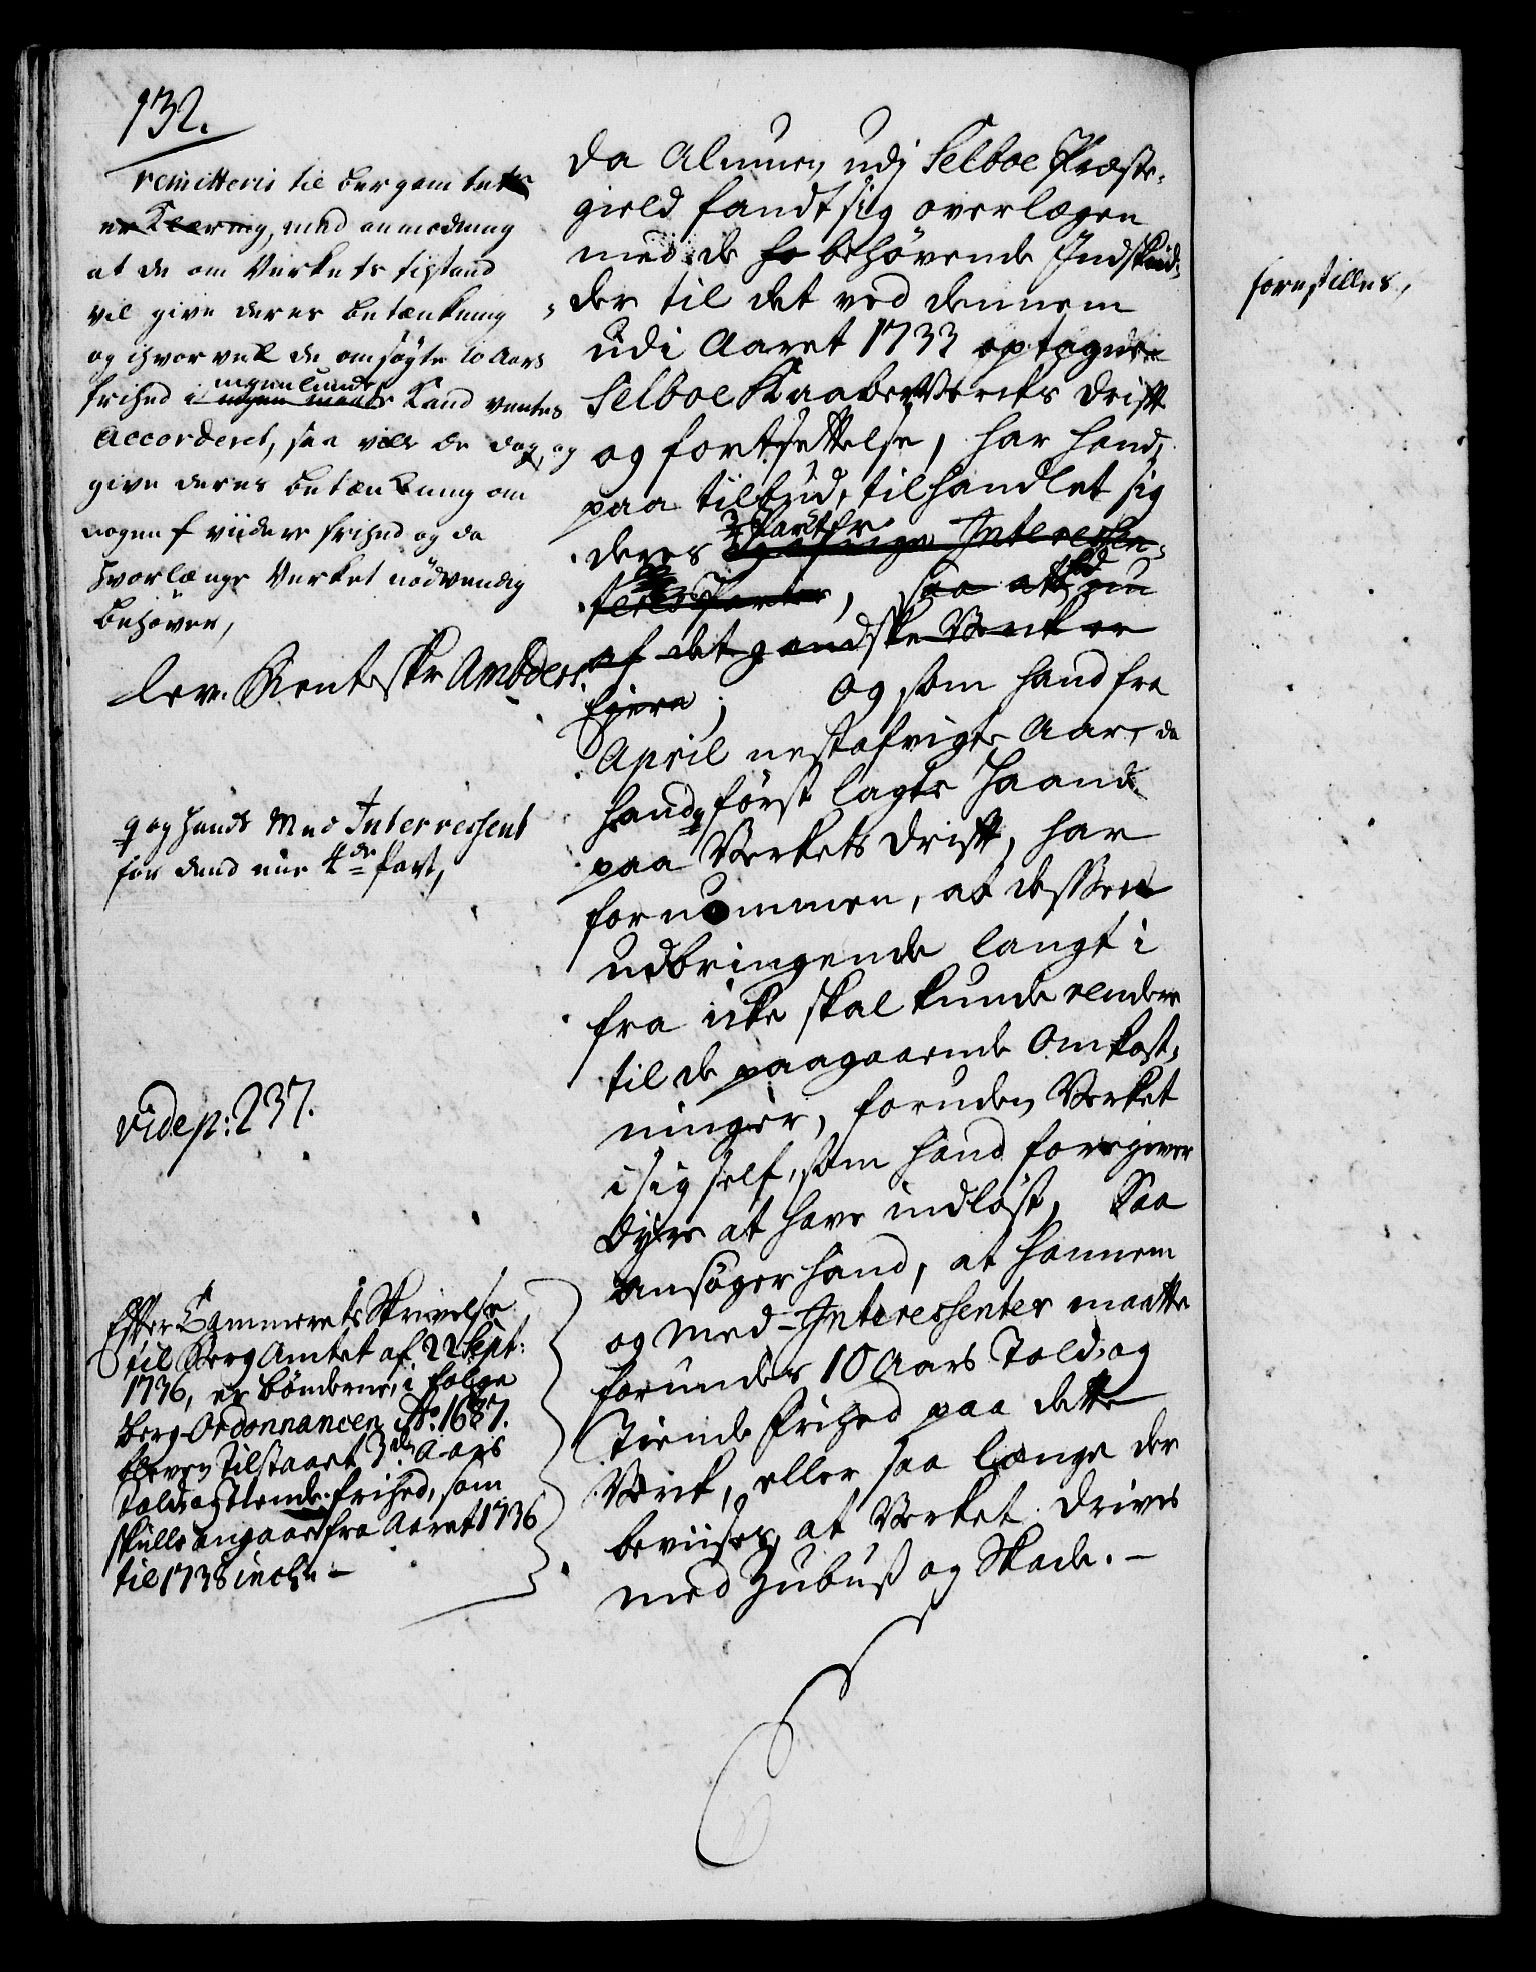 132.
remitteris til bergamtets
erKlæring, med anmodning
at de om Verkets tilstand
vil give deres betænkning
og ihvorvell de ansøgte 10 Aars
frihed i ingenlunde Kand ventes
Accorderet, saa vilde de dog, og
give deres betænkning om
nogen viidere frihed og da
hvorlænge Verket nødvendig
behøver,
lev. Renteskr Amtders.
og hands Med Interressent
for dend eene 4de part,
vide p: 237.
Efter Cammerets Skrivelse
til BergAmtet af 22 Sept:
1736, er bønderne, i følge
Berg-Ordonnancen Ao. 1687.
bleven tilstaaet 3de Aars
told og tiende-frihed, som
skulle angaae fra Aaret 1736
til 1738 incl: -
da Almuen udj Selboe Præste-
gield fandt sig overlægen
med de behøvende Indskud-
der til det ved dennem
udi Aaret 1733 optagne
Selboe KaaberVercks Drift
og fortsettelse, har hand,
paa tilbud, tilhandlet sig
deres 3 Parter Interessen-
ters Parter, saa at hand nu
af det gandske Verk er
Ejere; Og som hand fra
April nestafvigte Aar, da
hand først lagde Haand
paa Verkets Drift, har
fornommen, at dessen
udbringende langt i
fra icke skal kunde rendere
til de paagaaende Omkost-
ninger, foruden Verket
i sig self, som hand foregiver
dyre at have indløst, Saa
ansøger hand, at hannem
og Med-Interessenter maatte
forundes 10 Aars Told- og
Tiende Frihed paa dette
Verk, eller saa længe der
beviises, at Verket drives
med Zubuß og Skade. -
forestilles,